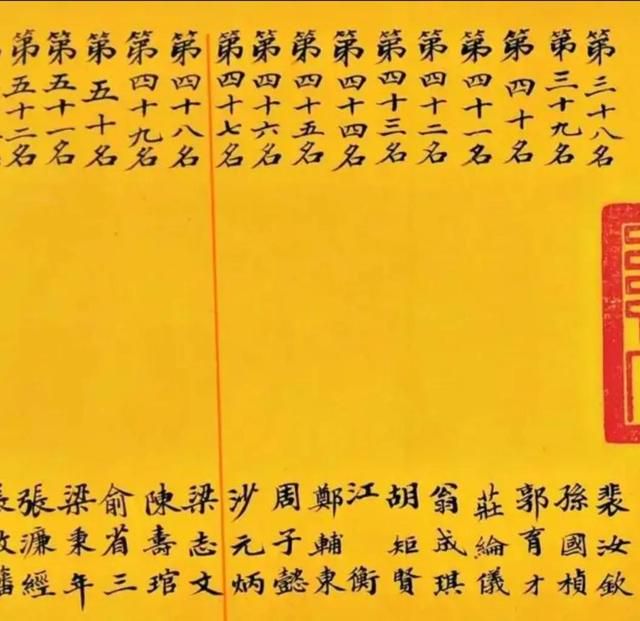 第三十八名 裴汝欽
第三十九名 孫國楨
第四十名 郭育才
第四十一名 莊綸儀
第四十二名 翁成琪
第四十三名 胡矩賢
第四十四名 江衡
第四十五名 鄭輔東
第四十六名 周子懿
第四十七名 沙元炳
第四十八名 梁志文
第四十九名 陳壽琯
第五十名 俞省三
第五十一名 梁秉年
第五十二名 張濂經